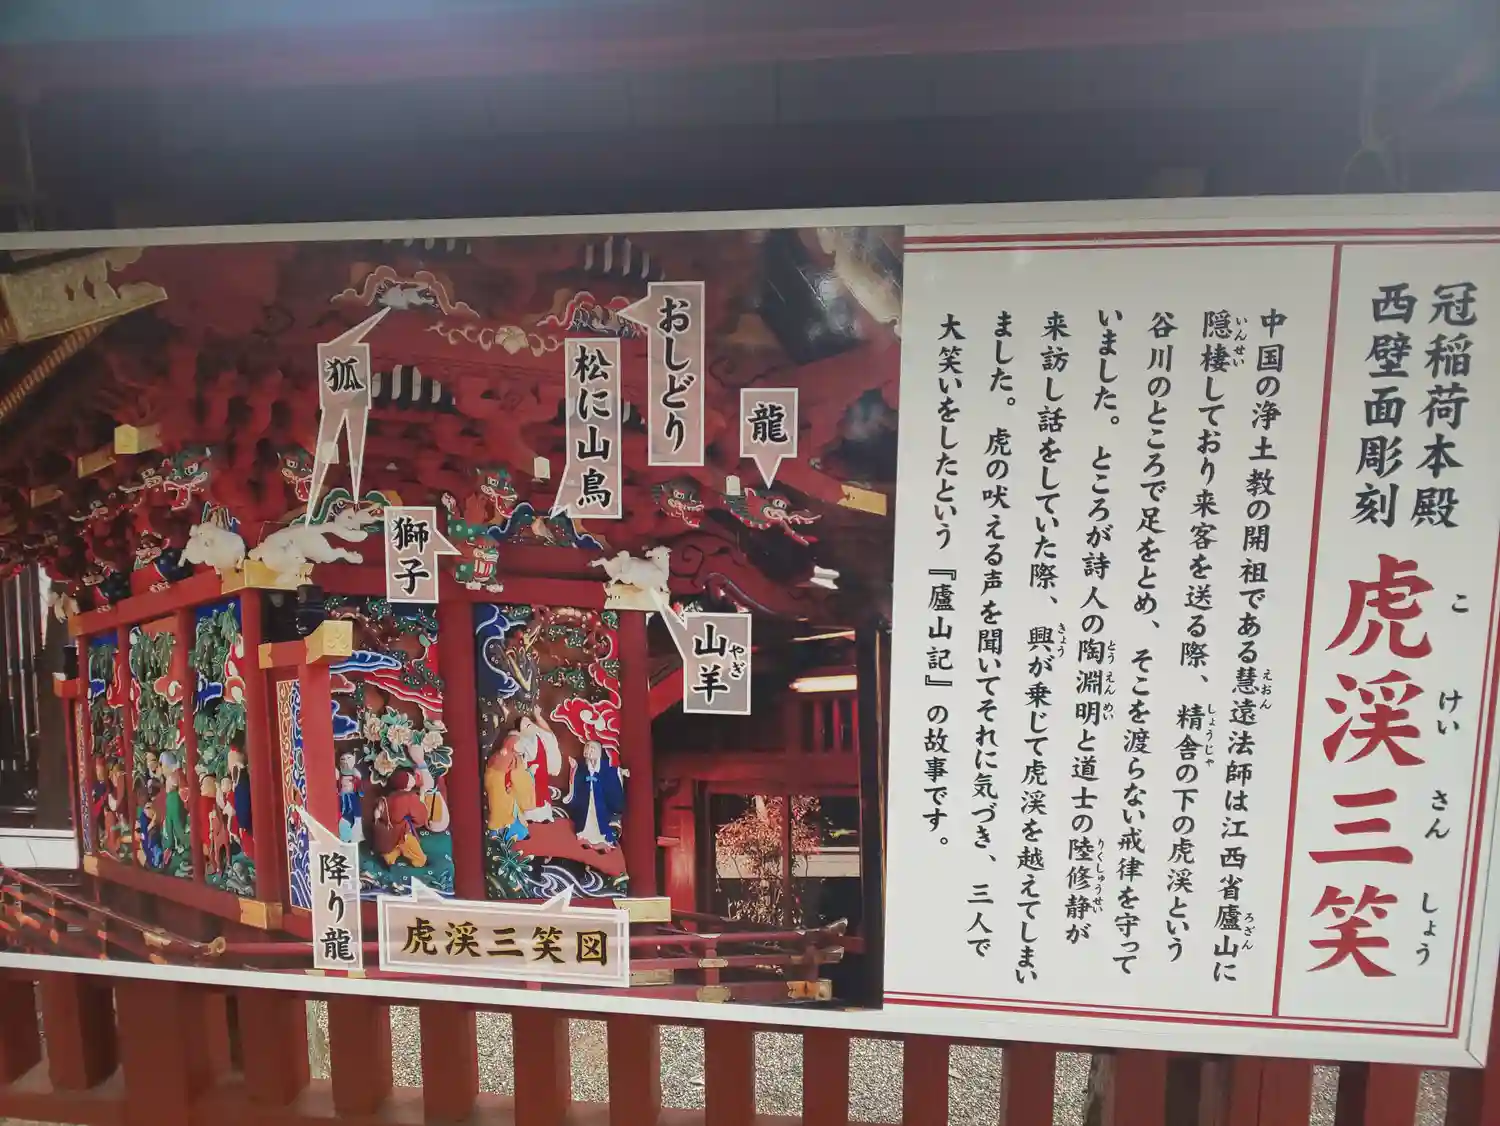 冠稲荷本殿
西壁面彫刻
虎渓三笑
こ けい さん しょう
中国の浄土教の開祖である慧遠法師は江西省廬山に
えおん
ろざん
隠棲しており来客を送る際、精舎の下の虎渓という
いんせい
しょうじゃ
谷川のところで足をとめ、そこを渡らない戒律を守って
いました。ところが詩人の陶淵明と道士の陸修静が
とうえんめい
りくしゅうせい
来訪し話をしていた際、興が乗じて虎渓を越えてしまい
きょう
ました。虎の吠える声を聞いてそれに気づき、三人で
大笑いをしたという『廬山記』の故事です。
おしどり
狐
松に山鳥
龍
獅子
山羊
やぎ
降り龍
虎渓三笑図